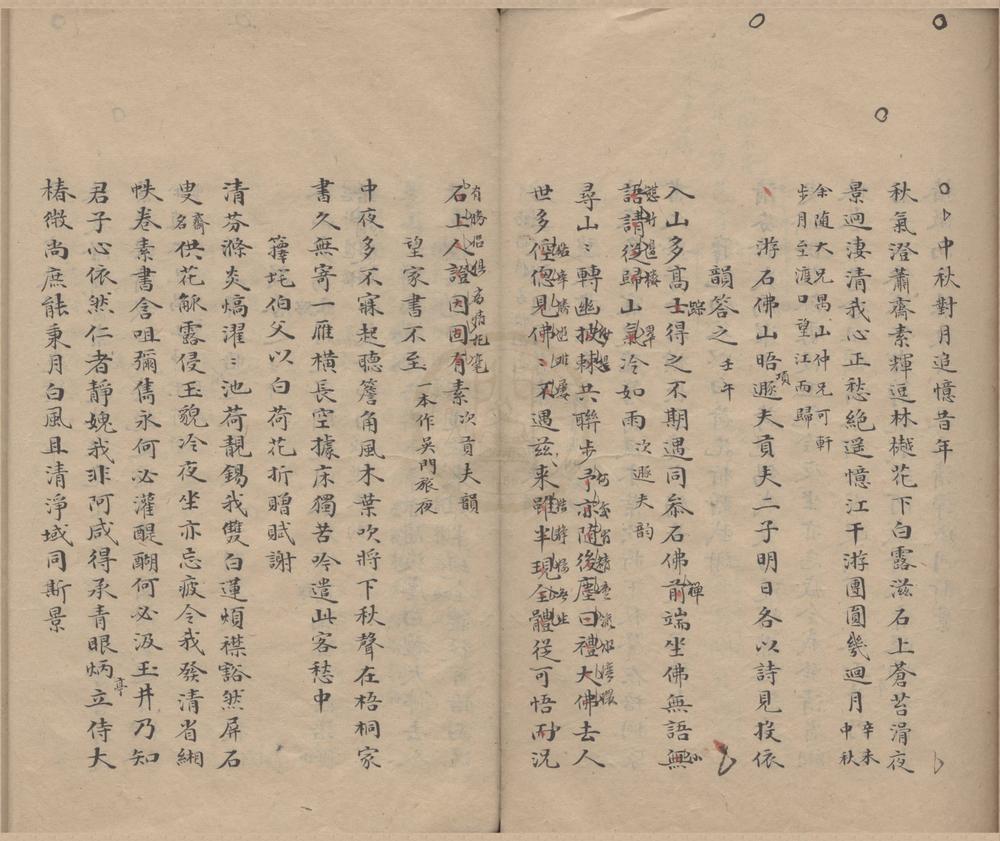 中秋對月追憶昔年
秋氣澄蕭齋素輝逗林樾花下白露滋石上蒼苔滑夜
景迥淒清我心正愁絕遥憶江干游團圓幾迴月辛未中秋
余随大兄禺山仲兄可軒
步月至渡口望江而歸
游石佛山晤遯夫貢夫二子明日各以詩見投依
韻答之壬午
入山多髙士得之不期遇同叅石佛前端坐佛無語無
語請從歸山氣冷如雨次遯夫韵
尋山三轉幽披棘共聯步予亦随後塵曰禮大佛去人
世多倥偬見佛〻不遇兹来雖半現全體從可悟耐況
有勝侣俱
石上人證因固有素次貢夫韻
望家書不至一本作吳門旅夜
中夜多不寐起聽簷角風木葉吹將下秋聲在梧桐家
書久無寄一雁横長空據床獨苦吟遣此客愁中
籜垞伯父以白荷花折贈賦謝
清芬滌炎熇濯〻池荷靚錫我雙白蓮煩襟豁然屏石
叟齋名供花觚露侵玉貌冷夜坐亦忘疲令我發清省緗
帙卷素書含咀彌雋永何必灌醍醐何必汲玉井乃知
君子心依然仁者靜媿我非阿咸得承青眼炳立侍大
椿微尚庶能秉月白風且清淨域同斯景